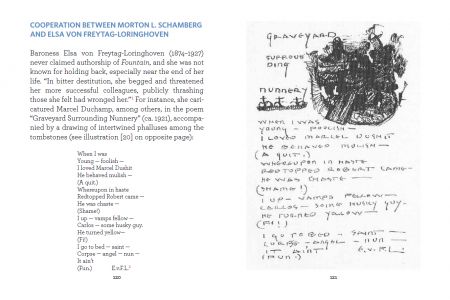 COOPERATION BETWEEN MORTON L. SCHAMBERG
AND ELSA VON FREYTAG-LORINGHOVEN
Baroness Elsa von Freytag-Loringhoven (1874-1927)
never claimed authorship of Fountain, and she was not
known for holding back, especially near the end of her
life. “In bitter destitution, she begged and threatened
her more successful colleagues, publicly thrashing
those she felt had wronged her.”¹ For instance, she cari-
catured Marcel Duchamp, among others, in the poem
“Graveyard Surrounding Nunnery” (ca. 1921), accompa-
nied by a drawing of intertwined phalluses among the
tombstones (see illustration [20] on opposite page):
When I was
Young — foolish —
I loved Marcel Dushit
He behaved mulish —
(A quit.)
Whereupon in haste
Redtopped Robert came —
He was chaste —
(Shame!)
I up — vamps fellow —
Carlos — some husky guy.
He turned yellow—
(Fi!)
I go to bed — saint —
Corpse — angel — nun —
It ain't
(Fun.) E.v.F.L.²
220
GRAVEYARD
SURROUN
DING
NUNNERY
WHEN I WAS
YOUNG — FOOLISH —
I LOVED MARCEL DUSHIT
HE BEHAVED MULISH —
(A QUIT.)
WHEREUPON IN HASTE
REDTOPPED ROBERT CAME—
HE WAS CHASTE —
(SHAME!)
I UP — VAMPS FELLOW —
CARLOS — SOME HUSKY GUY.
HE TURNED YELLOW —
(FI!)
I GO TO BED — SAINT —
CORPS — ANGEL — NUN —
IT AIN'T
(FUN.) E.V.F.L.
221